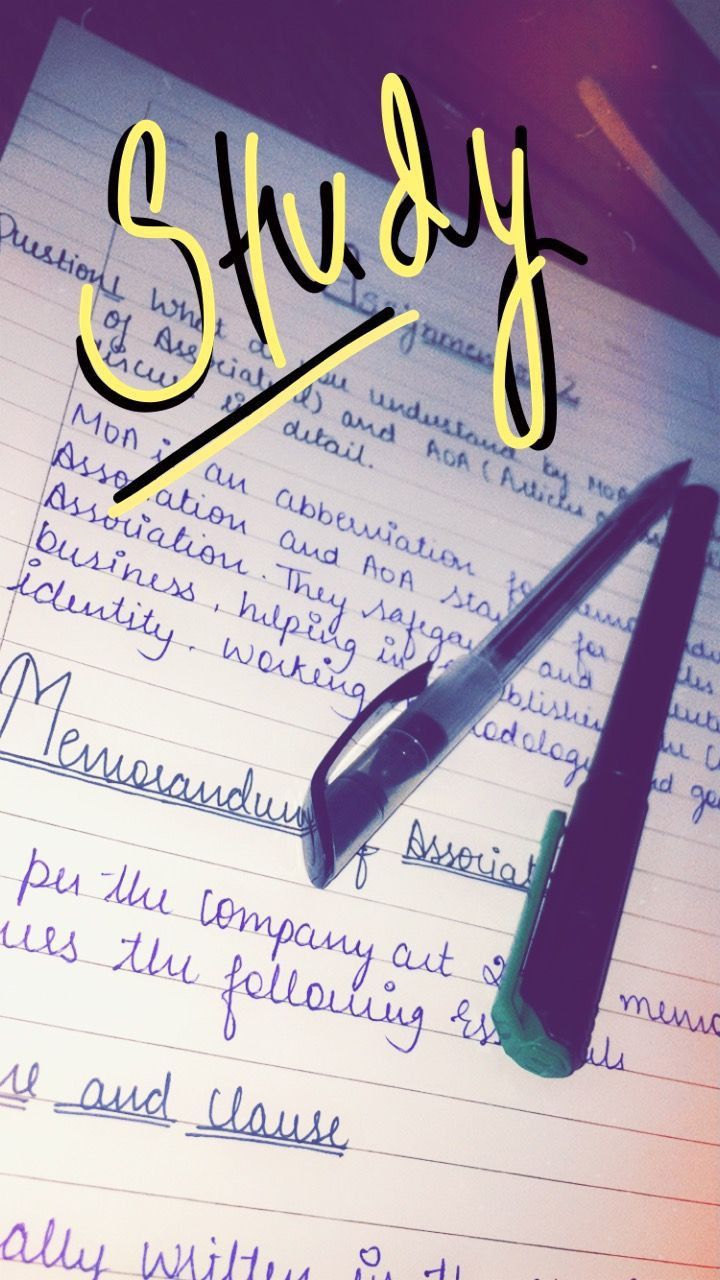 Study
Assignment 2
Question1 What do you understand by MOA
of Association) and AOA (Articles
discuss in detail.
MOA is an abberviation for
Association and AOA stands for
Association. They safeguard and
business, helping in
identity, working and
Memorandum of Associat
per the company act 2 memo
ues the following Ess als
and Clause
ally written in the